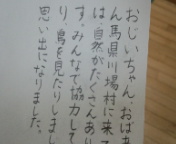 おじいちゃん、おばあ
ん馬県川場村に来て
は、自然がたくさんあり
す。みんなで協力して
り、鳥を見たりしまし
思い出になりました。